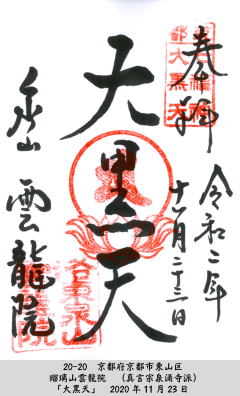 奉拝
令和二年
十一月二十三日
大黒天
泉山
雲龍院
20-20　京都府京都市東山区
瑠璃山雲龍院　（真言宗泉涌寺派）
「大黒天」　2020年11月23日